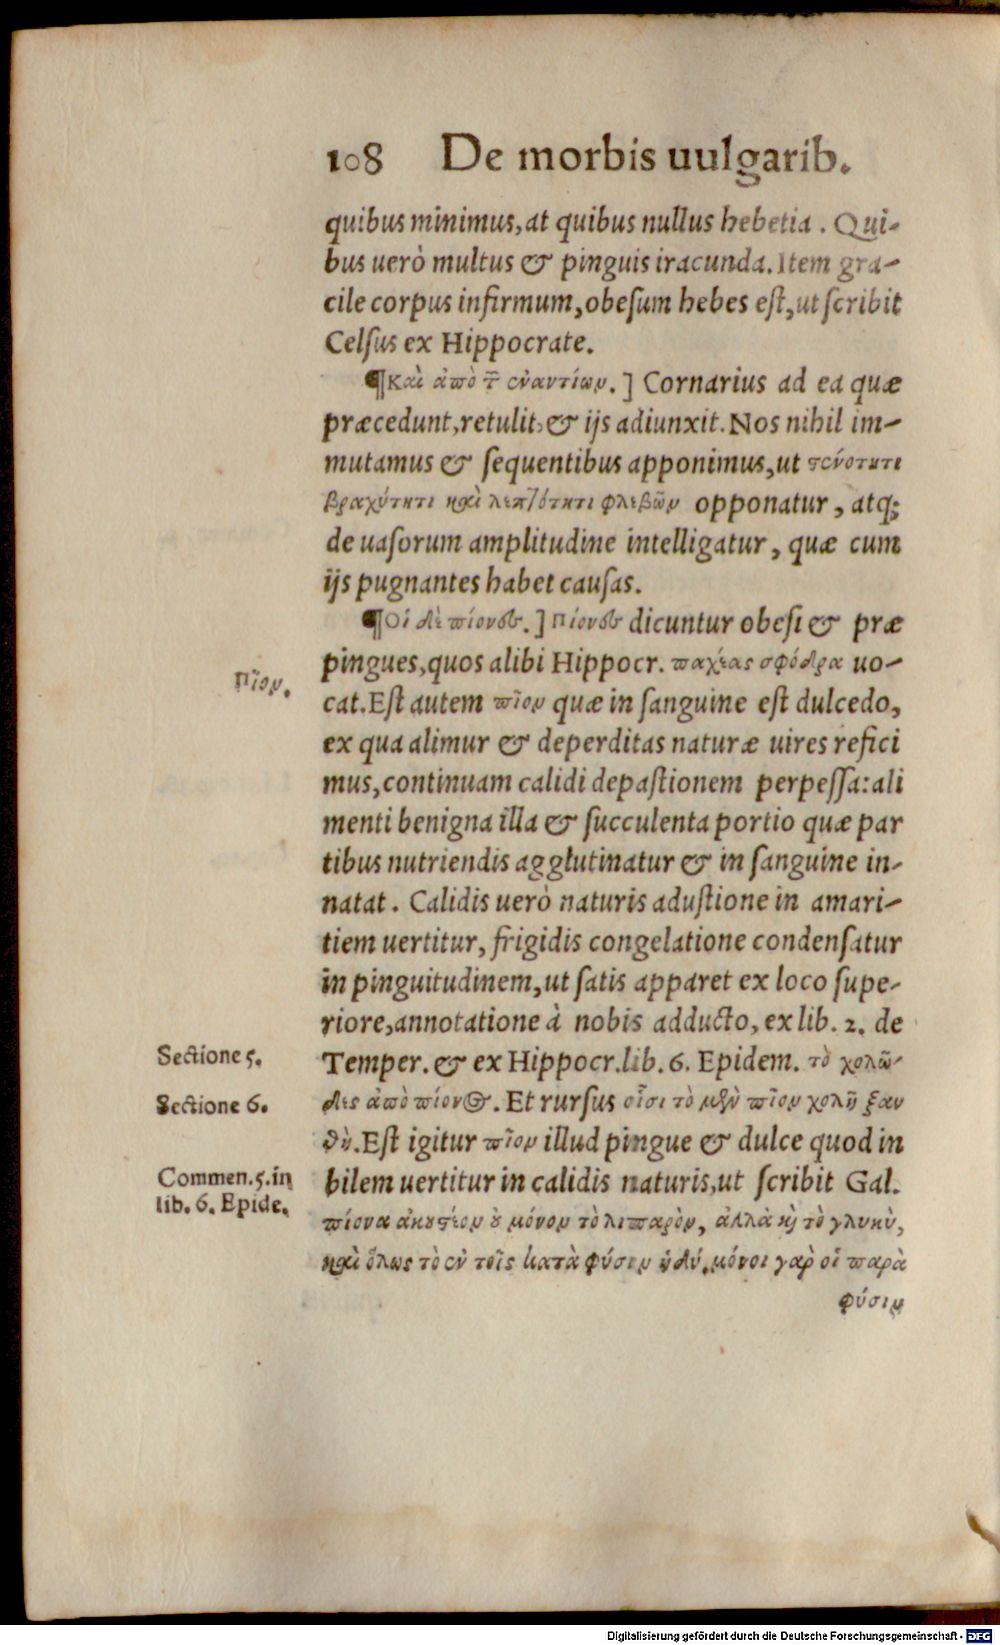 108 De morbis uulgarib.
quibus minimus, at quibus nullus hebetia. Qui-
bus uerò multus & pinguis iracunda. Item gra-
cile corpus infirmum, obesum hebes est, ut scribit
Celsus ex Hippocrate.
¶ Καὶ ἀπὸ τ͂ ἐναντίων.] Cornarius ad ea quæ
præcedunt, retulit, & ijs adiunxit. Nos nihil im-
mutamus & sequentibus apponimus, ut στενότητι
βραχύτητι καὶ λεπτότητι φλεβῶν opponatur, atq;
de uasorum amplitudine intelligatur, quæ cum
ijs pugnantes habet causas.
¶ Οἱ δὲ πίονες.] Πίονες dicuntur obesi & præ
pingues, quos alibi Hippocr. παχέας σφόδρα uo-
Πῖον.
cat. Est autem πῖον quæ in sanguine est dulcedo,
ex qua alimur & deperditas naturæ uires refici
mus, continuam calidi depastionem perpessa: ali
menti benigna illa & succulenta portio quæ par
tibus nutriendis agglutinatur & in sanguine in-
natat. Calidis uerò naturis adustione in amari-
tiem uertitur, frigidis congelatione condensatur
in pinguitudinem, ut satis apparet ex loco supe-
riore, annotatione à nobis adducto, ex lib. 2. de
Sectione 5.
Temper. & ex Hippocr. lib. 6. Epidem. τὸ χολῶ-
Sectione 6.
δες ἀπὸ πίονος. Et rursus οἷσι τὸ μὲν πῖον χολὴ ξαν
θὴ. Est igitur πῖον illud pingue & dulce quod in
Commen. 5. in
lib. 6. Epide.
bilem uertitur in calidis naturis, ut scribit Gal.
πίονα ἀκουστέον οὐ μόνον τὸ λιπαρὸν, ἀλλὰ καὶ τὸ γλυκὺ,
καὶ ὅλως τὸ ἐν τοῖς κατὰ φύσιν ἡδύ. μόνοι γὰρ οἱ παρὰ
φύσιν
Digitalisierung gefördert durch die Deutsche Forschungsgemeinschaft - DFG